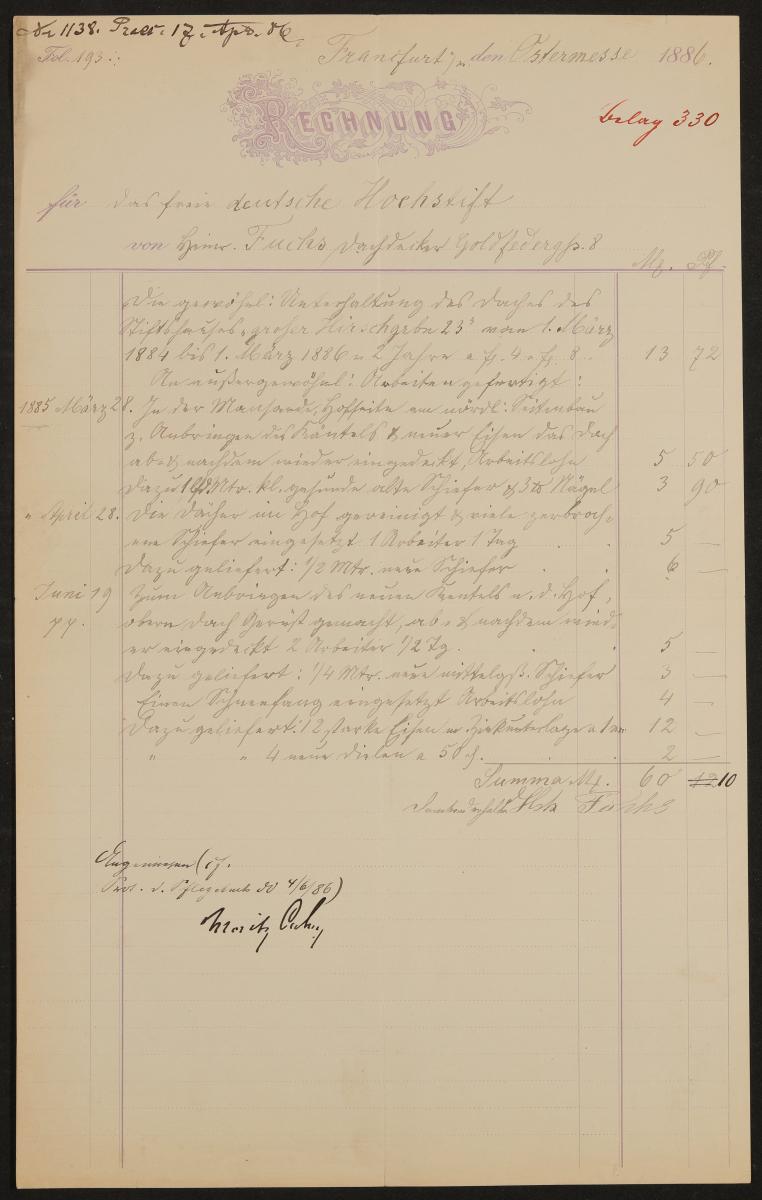 No 1138. Präs. 17. Apr. 86.
Fol. 193
Frankfurt, den Ostermesse 1886.
RECHNUNG
Belag 330
für das freie deutsche Hochstift
von Heinr. Fuchs Dachdecker Goldfedergß. 8
Mk. Pf.
Die gewöhnl: Unterhaltung des Daches des
Stiftshauses, großer Hirschgrabn 23 von 1. März
1884 bis 1. März 1886 2 Jahre a fl. 4 fl. 8 .. 13 72
An außergewöhnl: Arbeiten gefertigt:
1885 März 28. In der Mansarde, Hofseite am nördl: Seitenbau
z. Anbringen des Käntels & neuer Eisen das Dach
ab & nachdem wieder eingedeckt, Arbeitslohn 5 50
Dazu Mtr. kl. gesunde alte Schiefer & 3 Nägel 3 90
" April 28. Die Dächer im Hof gereinigt & viele zerbroch-
ene Schiefer eingesetzt 1 Arbeiter 1 Tag . . 5 —
Dazu geliefert: 1/2 Mtr. neue Schiefer . . 6 —
Juni 19 Zum Anbringen des neuen Kentels a. d. Hof,
obern Dach Gerüst gemacht, ab- & nachdem wied-
er eingedeckt 2 Arbeiter 1/2 Tg. . . 5 —
Dazu geliefert: 1/4 Mtr. neue mittelgß. Schiefer 3 —
Einen Schneefang eingesetzt Arbeitslohn 4 —
Dazu geliefert: 12 starke Eisen m Zinkunterlage a 1 12 —
" " 4 neue Dielen a 50 . . . 2 —
Summa Mk. 60 12 10
Dankend erhalten Hch Fuchs
Angewiesen (cf.
Prot. d. 4/6/86)
Moritz